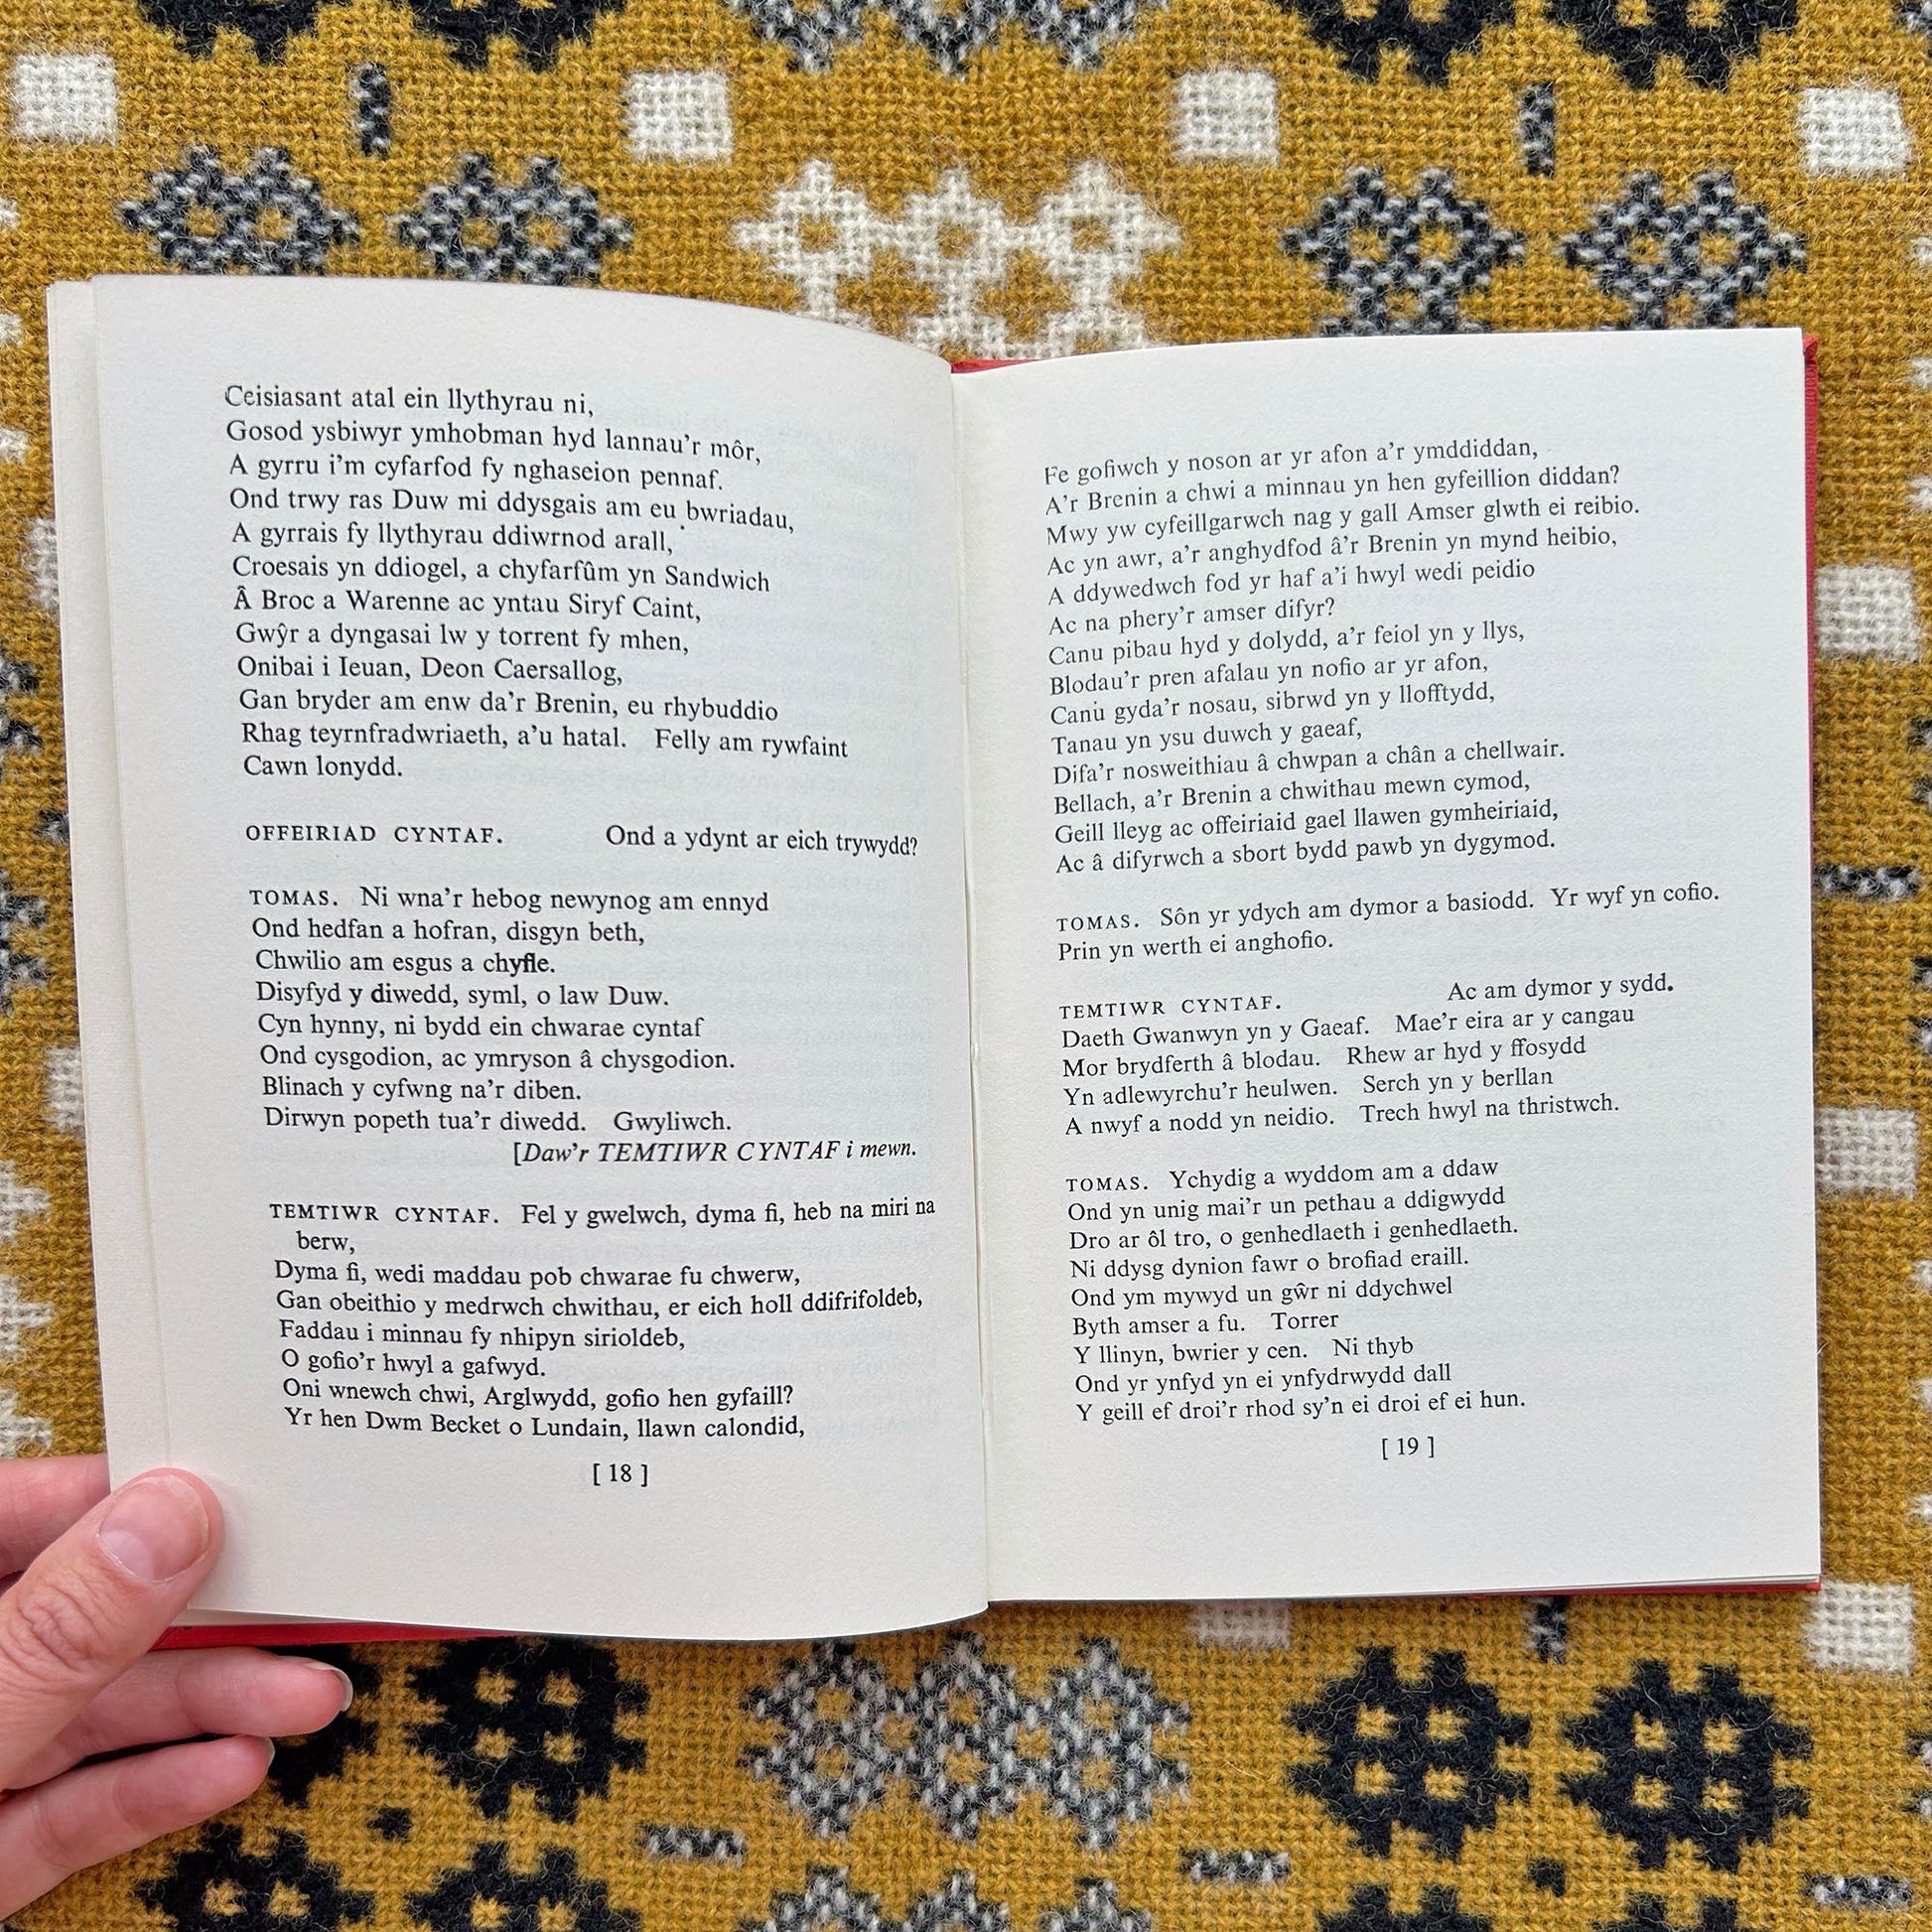 Ceisiasant atal ein llythyrau ni,
Gosod ysbiwyr ymhobman hyd lannau'r môr,
A gyrru i'm cyfarfod fy nghaseion pennaf.
Ond trwy ras Duw mi ddysgais am eu bwriadau,
A gyrrais fy llythyrau ddiwrnod arall,
Croesais yn ddiogel, a chyfarfûm yn Sandwich
Â Broc a Warenne ac yntau Siryf Caint,
Gwŷr a dyngasai lw y torrent fy mhen,
Onibai i Ieuan, Deon Caersallog,
Gan bryder am enw da'r Brenin, eu rhybuddio
Rhag teyrnfradwriaeth, a'u hatal. Felly am rywfaint
Cawn lonydd.
OFFEIRIAD CYNTAF. Ond a ydynt ar eich trywydd?
TOMAS. Ni wna'r hebog newynog am ennyd
Ond hedfan a hofran, disgyn beth,
Chwilio am esgus a chyfle.
Disyfyd y diwedd, syml, o law Duw.
Cyn hynny, ni bydd ein chwarae cyntaf
Ond cysgodion, ac ymryson â chysgodion.
Blinach y cyfwng na'r diben.
Dirwyn popeth tua'r diwedd. Gwyliwch.
[Daw'r TEMTIWR CYNTAF i mewn.
TEMTIWR CYNTAF. Fel y gwelwch, dyma fi, heb na miri na
berw,
Dyma fi, wedi maddau pob chwarae fu chwerw,
Gan obeithio y medrwch chwithau, er eich holl ddifrifoldeb,
Faddau i minnau fy nhipyn sirioldeb,
O gofio'r hwyl a gafwyd.
Oni wnewch chwi, Arglwydd, gofio hen gyfaill?
Yr hen Dwm Becket o Lundain, llawn calondid,
[ 18 ]
Fe gofiwch y noson ar yr afon a'r ymddiddan,
A'r Brenin a chwi a minnau yn hen gyfeillion diddan?
Mwy yw cyfeillgarwch nag y gall Amser glwth ei reibio.
Ac yn awr, a'r anghydfod â'r Brenin yn mynd heibio,
A ddywedwch fod yr haf a'i hwyl wedi peidio
Ac na phery'r amser difyr?
Canu pibau hyd y dolydd, a'r feiol yn y llys,
Blodau'r pren afalau yn nofio ar yr afon,
Canu gyda'r nosau, sibrwd yn y llofftydd,
Tanau yn ysu duwch y gaeaf,
Difa'r nosweithiau â chwpan a chân a chellwair.
Bellach, a'r Brenin a chwithau mewn cymod,
Geill lleyg ac offeiriaid gael llawen gymheiriaid,
Ac â difyrwch a sbort bydd pawb yn dygymod.
TOMAS. Sôn yr ydych am dymor a basiodd. Yr wyf yn cofio.
Prin yn werth ei anghofio.
TEMTIWR CYNTAF. Ac am dymor y sydd.
Daeth Gwanwyn yn y Gaeaf. Mae'r eira ar y cangau
Mor brydferth â blodau. Rhew ar hyd y ffosydd
Yn adlewyrchu'r heulwen. Serch yn y berllan
A nwyf a nodd yn neidio. Trech hwyl na thristwch.
TOMAS. Ychydig a wyddom am a ddaw
Ond yn unig mai'r un pethau a ddigwydd
Dro ar ôl tro, o genhedlaeth i genhedlaeth.
Ni ddysg dynion fawr o brofiad eraill.
Ond ym mywyd un gŵr ni ddychwel
Byth amser a fu. Torrer
Y llinyn, bwrier y cen. Ni thyb
Ond yr ynfyd yn ei ynfydrwydd dall
Y geill ef droi'r rhod sy'n ei droi ef ei hun.
[ 19 ]